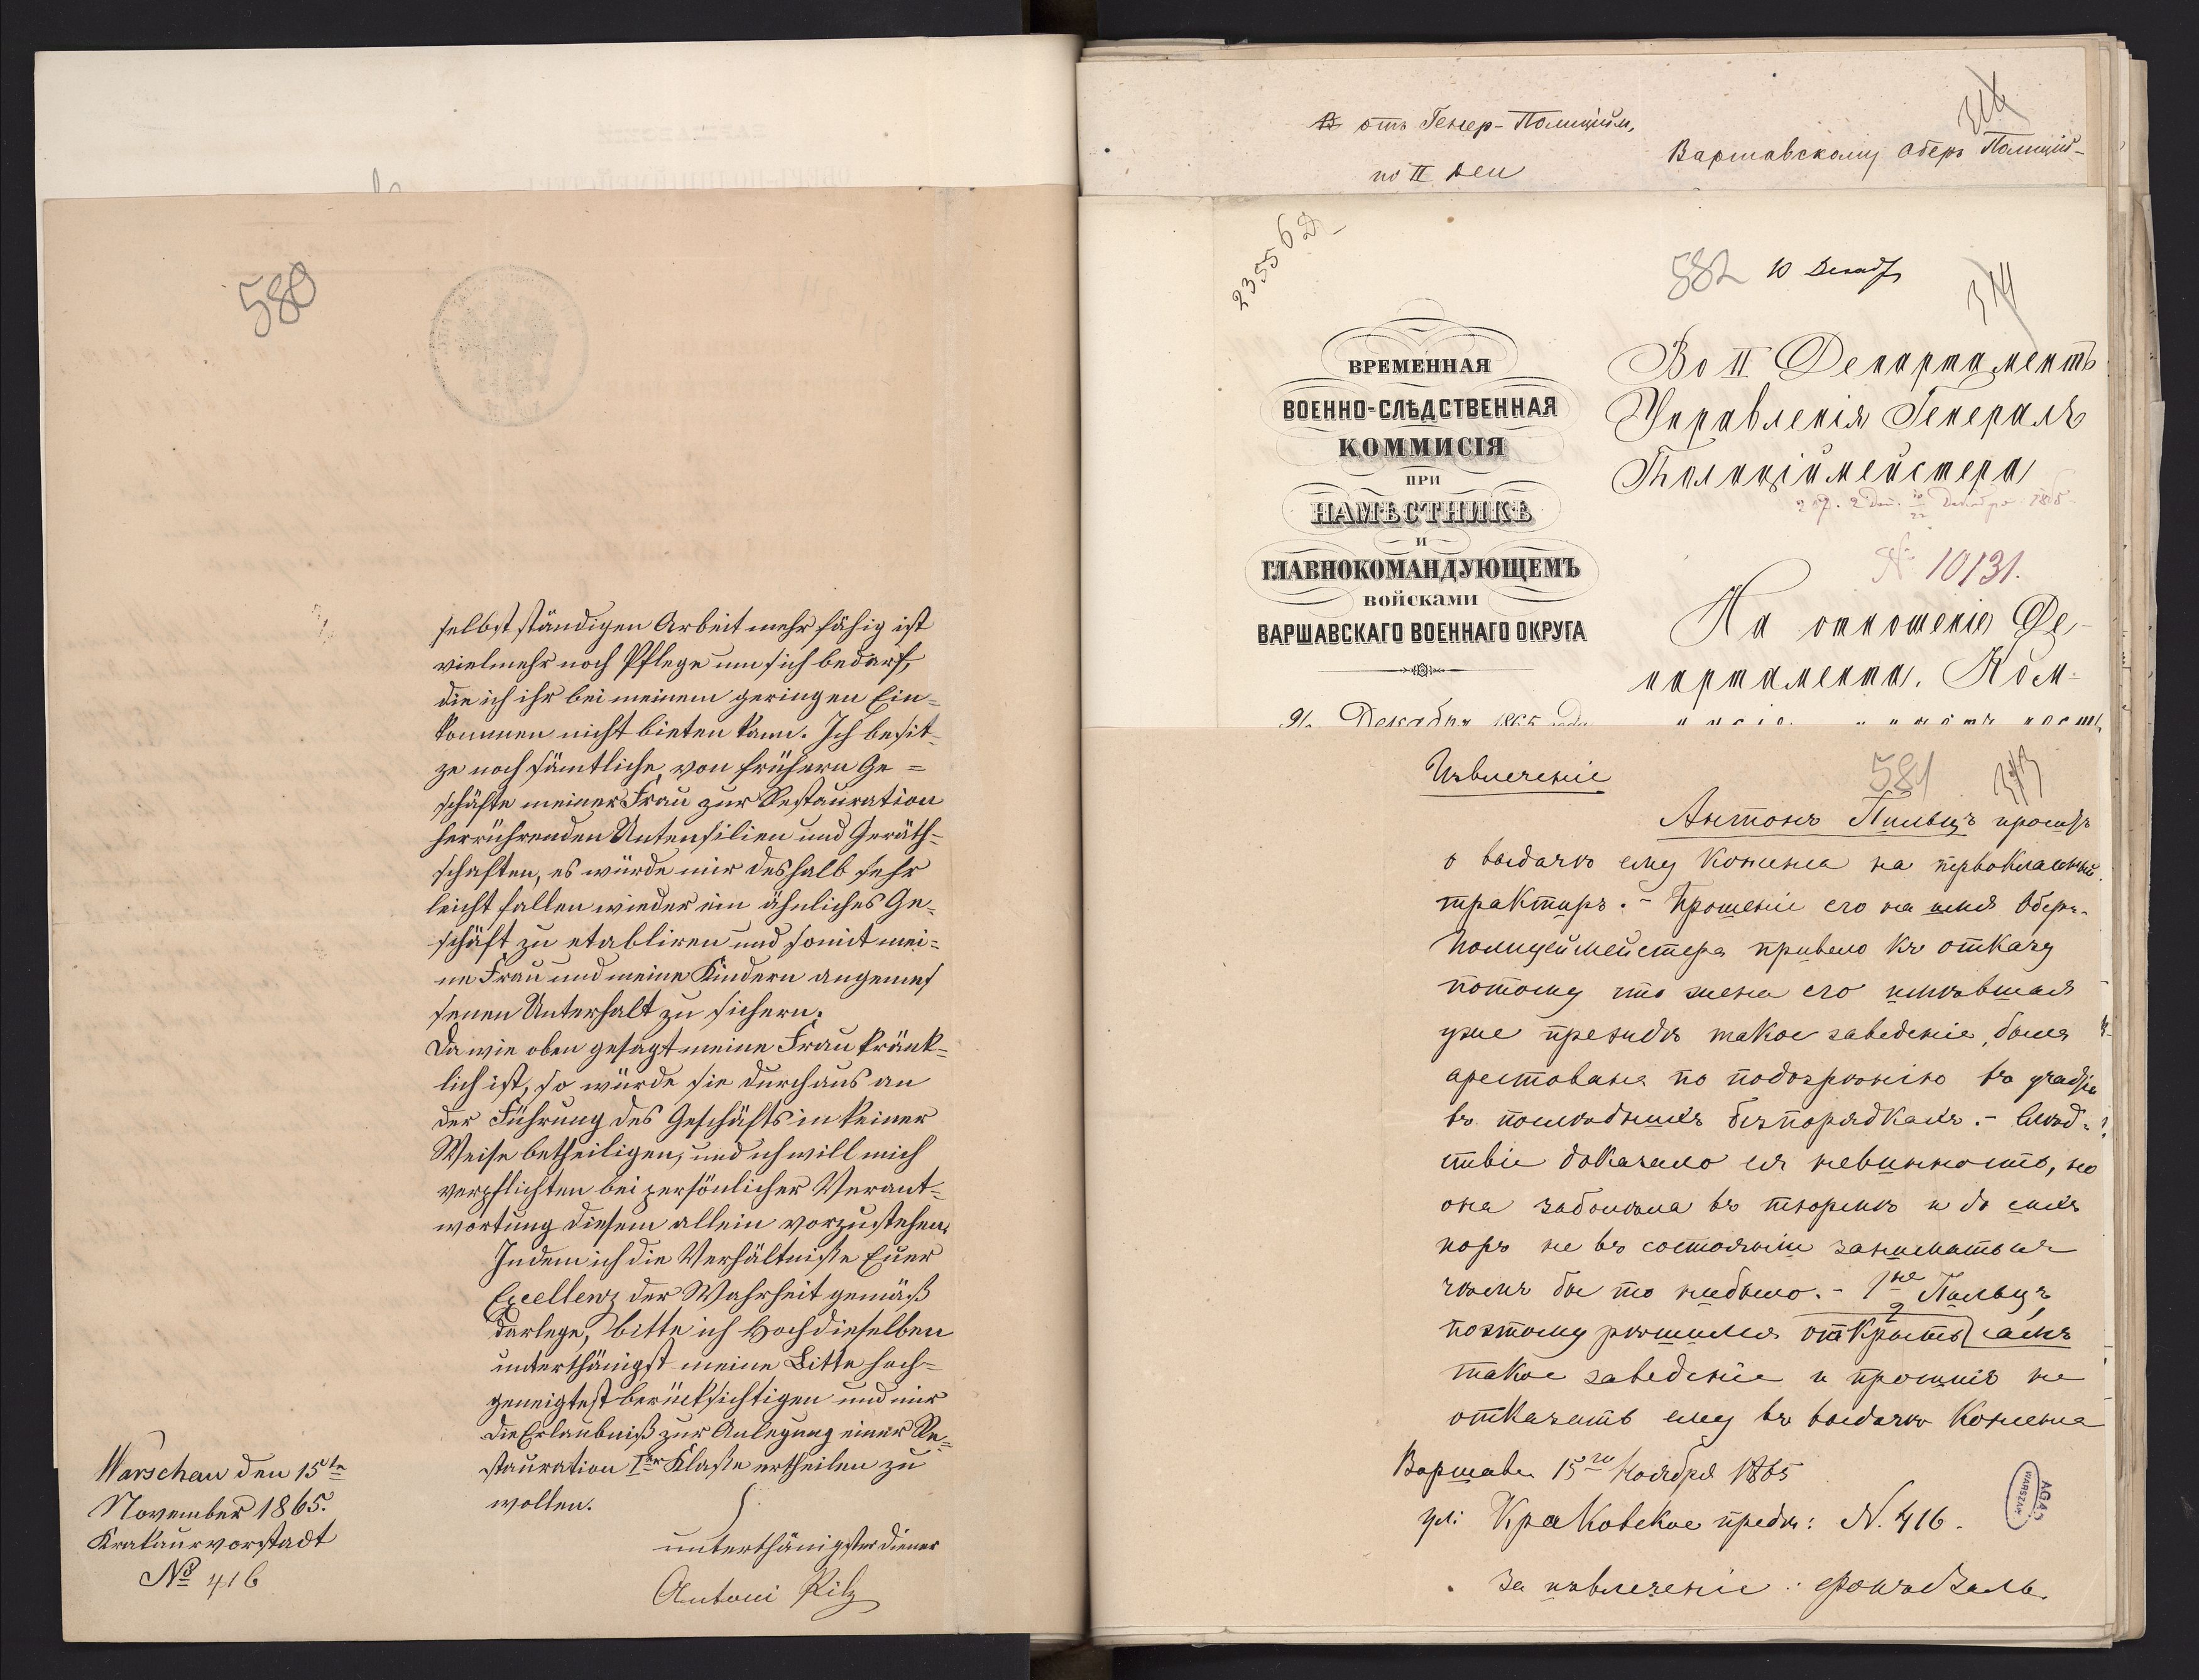 580
selbst ständigen Arbeit mehr fähig ist
vielmehr noch Pflege um sich bedarf,
die ich ihr bei meinem geringen Ein-
kommen nicht bieten kann. Ich besit-
ze noch sämtliche, von frühern Ge=
schäfte meiner Frau zur Restauration
herrührenden Untensilien und Geräth-
schaften, es würde mir deshalb sehr
leicht fallen wieder ein ähnliches Ge-
schäft zu etabliren und somit mei-
ne Frau und meine Kindern angemes
senen Unterhalt zu sichern.
Da wie oben gesagt meine Frau kränk-
lich ist, so würde sie durchaus an
der Führung des Geschäfts in keiner
Weise betheiligen, und ich will mich
verpflichten bei persönlicher Verant-
wortung diesem allein vorzustehen.
Indem ich die Verhältniße Euer
Excellenz der Wahrheit gemäß
darlege, bitte ich Hochdieselben
unterthänigst meine Bitte hoch-
geneigtest berücksichtigen und mir
die Erlaubniß zur Anlegung einer Re-
stauration Iter Klaße ertheilen zu
wollen.
unterthänigster Diener
Antoni Pilz
Warschau den 15te
November 1865.
Krakaurvorstadt
No 416
отъ Генер-Полицiйм,
по II Деп
Варшавскому Оберъ Полицiй-
23556
582 10 Декабр
ВРЕМЕННАЯ
ВОЕННО-СЛѢДСТВЕННАЯ
КОММИСІЯ
ПРИ
НАМѢСТНИКѢ
И
ГЛАВНОКОМАНДУЮЩЕМЪ
ВОЙСКАМИ
ВАРШАВСКАГО ВОЕННАГО ОКРУГА
Декабря 1865 года
Во II Департаментъ
Управленія Генералъ
Полиціймейстера
№ 10131.
На отношеніе Де-
партамента. Ком-
Извлеченіе
581
Антонъ Пильцъ проситъ
о выдачѣ ему Консенса на первоклассный
трактиръ. - Прошеніе его на имя Оберъ-
Полицеймейстера привело къ отказу
потому что жена его имѣвшая
уже прежде такое заведеніе, была
арестована по подозрѣнію въ участіи
въ послѣднихъ безпорядкахъ. - Слѣд-
ствіе доказало ея невинность, но
она заболѣла въ тюрьмѣ и до сихъ
поръ не въ состояніи заниматься
чѣмъ бы то нибыло. - Пильцъ,
поэтому рѣшился открыть самъ
такое заведеніе и проситъ не
отказать ему въ выдачѣ Консенса
Варшава 15го Ноября 1865
ул: Краковское предм: N. 416.
За извлеченіе:
AGAD
WARSZAWA